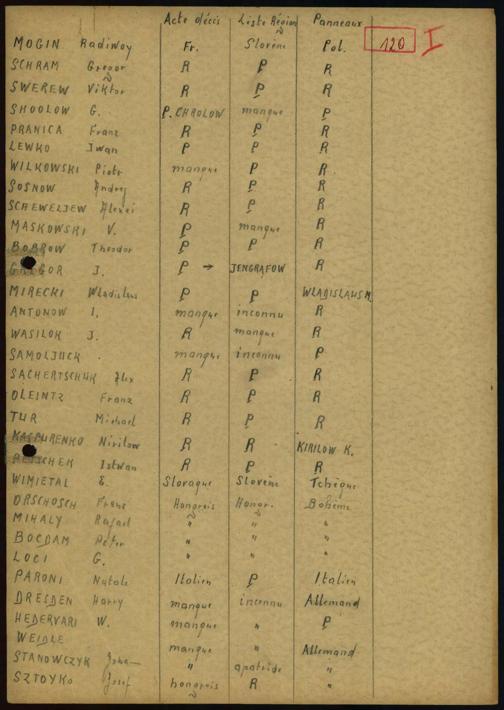 Acte décès Liste Région Panneaux
MOGIN Radiwoy Fr. Slovène Pol. 120 I
SCHRAM Gregor R P R
SWEREW Viktor R P R
SHOOLOW G. P. CHROLOW manque P
PRANICA Franz R P R
LEWKO Iwan P P R
WILKOWSKI Piotr manque P R
SOSNOW Andrej R P R
SCHEWELJEW Alexei R P R
MASKOWSKI V. P manque R
BOBROW Theodor P P R
GREGOR J. P → JENGRAFOW R
MIRECKI Wladislaus P P WLADISLAUS M.
ANTONOW I. manque inconnu R
WASILOK J. R manque R
SAMOLJUCK . manque inconnu P
SACHERTSCHUK Alex R P R
OLEINTZ Franz R P R
TUR Michael R P R
KASPURENKO Nirilow R R KIRILOW K.
Istwan R P R
WIMIETAL E. Slovaque Slovène Tchèque
ORSCHOSCH Franz Hongrois Hongr. Bohème
MIHALY Rafael " " "
BOGDAM Peter " " "
LOCI G. " " "
PARONI Natale Italien P Italien
DRESDEN Harry manque inconnu Allemand
HEDERVARI W. manque " P
WEIDLE manque " Allemand
STANOWCZYK " apatride "
SZTOYKO Josef hongrois R "